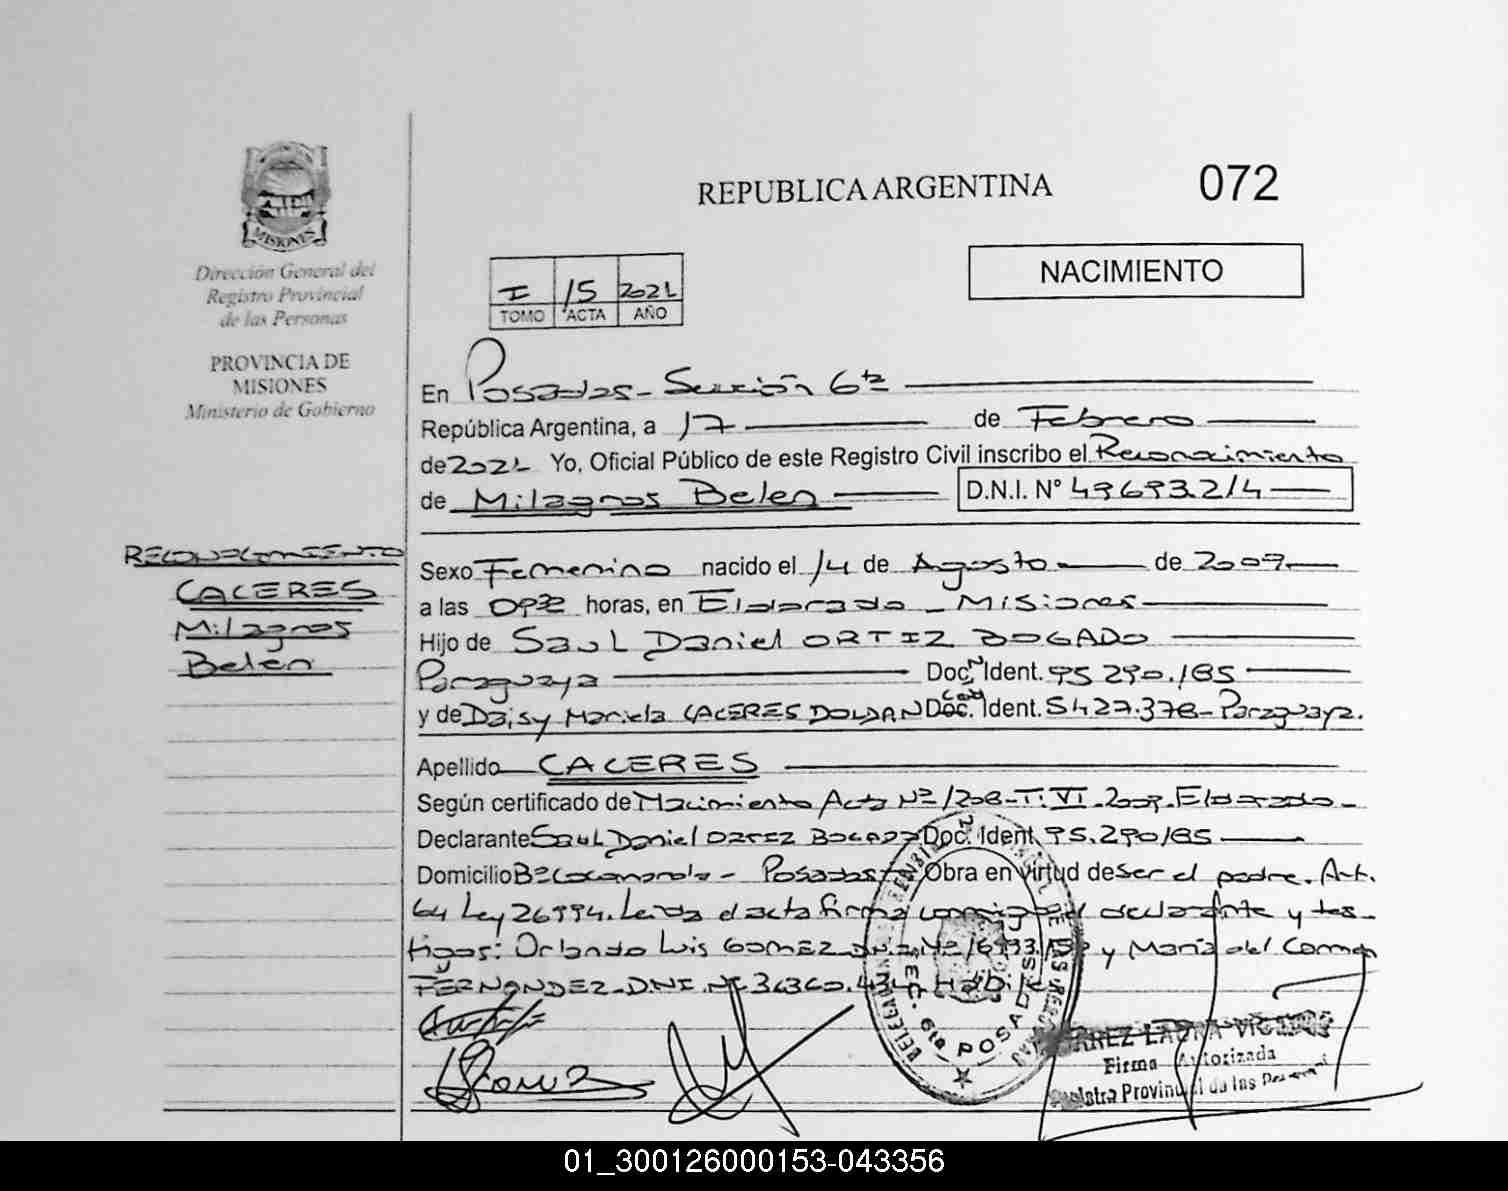 REPUBLICA ARGENTINA
072
MISIONES
Dirección General del
Registro Provincial
de las Personas
PROVINCIA DE
MISIONES
Ministerio de Gobierno
NACIMIENTO
I 15 2021
TOMO ACTA AÑO
En Posadas - Sección 6ta
República Argentina, a 17 de Febrero
de 2021 Yo, Oficial Público de este Registro Civil inscribo el Reconocimiento
de Milagros Belen D.N.I. N° 49693214
RECONOCIMIENTO
CACERES
Milagros
Belen
Sexo Femenino nacido el 14 de Agosto de 2009
a las horas, en Eldorado - Misiones
Hijo de Saul Daniel ORTIZ BOGADO
Paraguaya Doc. N Ident. 95.290.185
y de Daisy Mariela CACERES DOLDAN Doc. Ident. 5.427.378 - Paraguaya.
Apellido CACERES
Según certificado de Nacimiento Acta Nº 1208 - T. VI - 2009 - Eldorado -
Declarante Saul Daniel ORTIZ BOGADO Doc. Ident. 95.290185
Domicilio Bº - Posadas Obra en virtud de ser el padre. Art.
64 Ley 26994. Leida el acta firma conmigo el declarante y tes-
tigos: Orlando Luis GOMEZ D.N.I. Nº y Maria del Carmen
FERNANDEZ - D.N.I. Nº 36360.434 - Habil
SEC. 6ta POSADAS
LAURA
Firma Autorizada
Registro Provincial de las
01_300126000153-043356